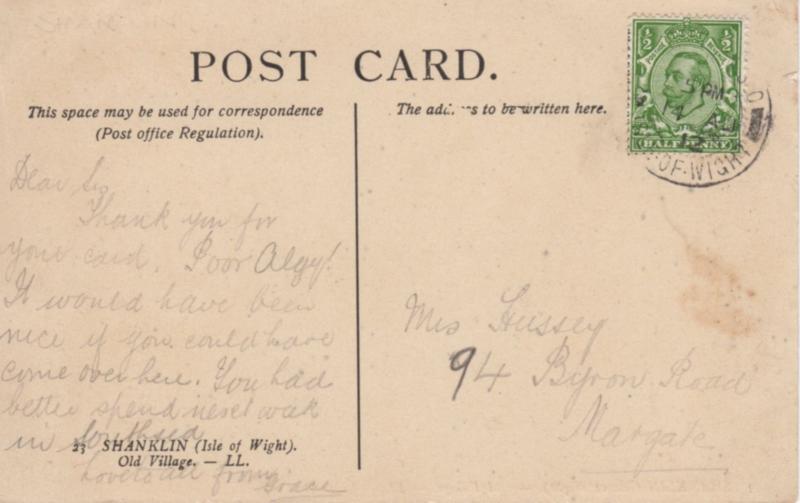 POST CARD.
This space may be used for correspondence
(Post office Regulation).
The add s to be written here.
½ ½
POSTAGE REVENUE
HALFPENNY
5 PM
14
12
OF WIGHT
Dear Sis
Thank you for
your card. Poor Algy!
It would have been
nice if you could have
come over here. You had
better spend next week
in Southsea
Love to all from
Grace
23 SHANKLIN (Isle of Wight).
Old Village. — LL.
Mrs Hussey
94 Byron Road
Margate.